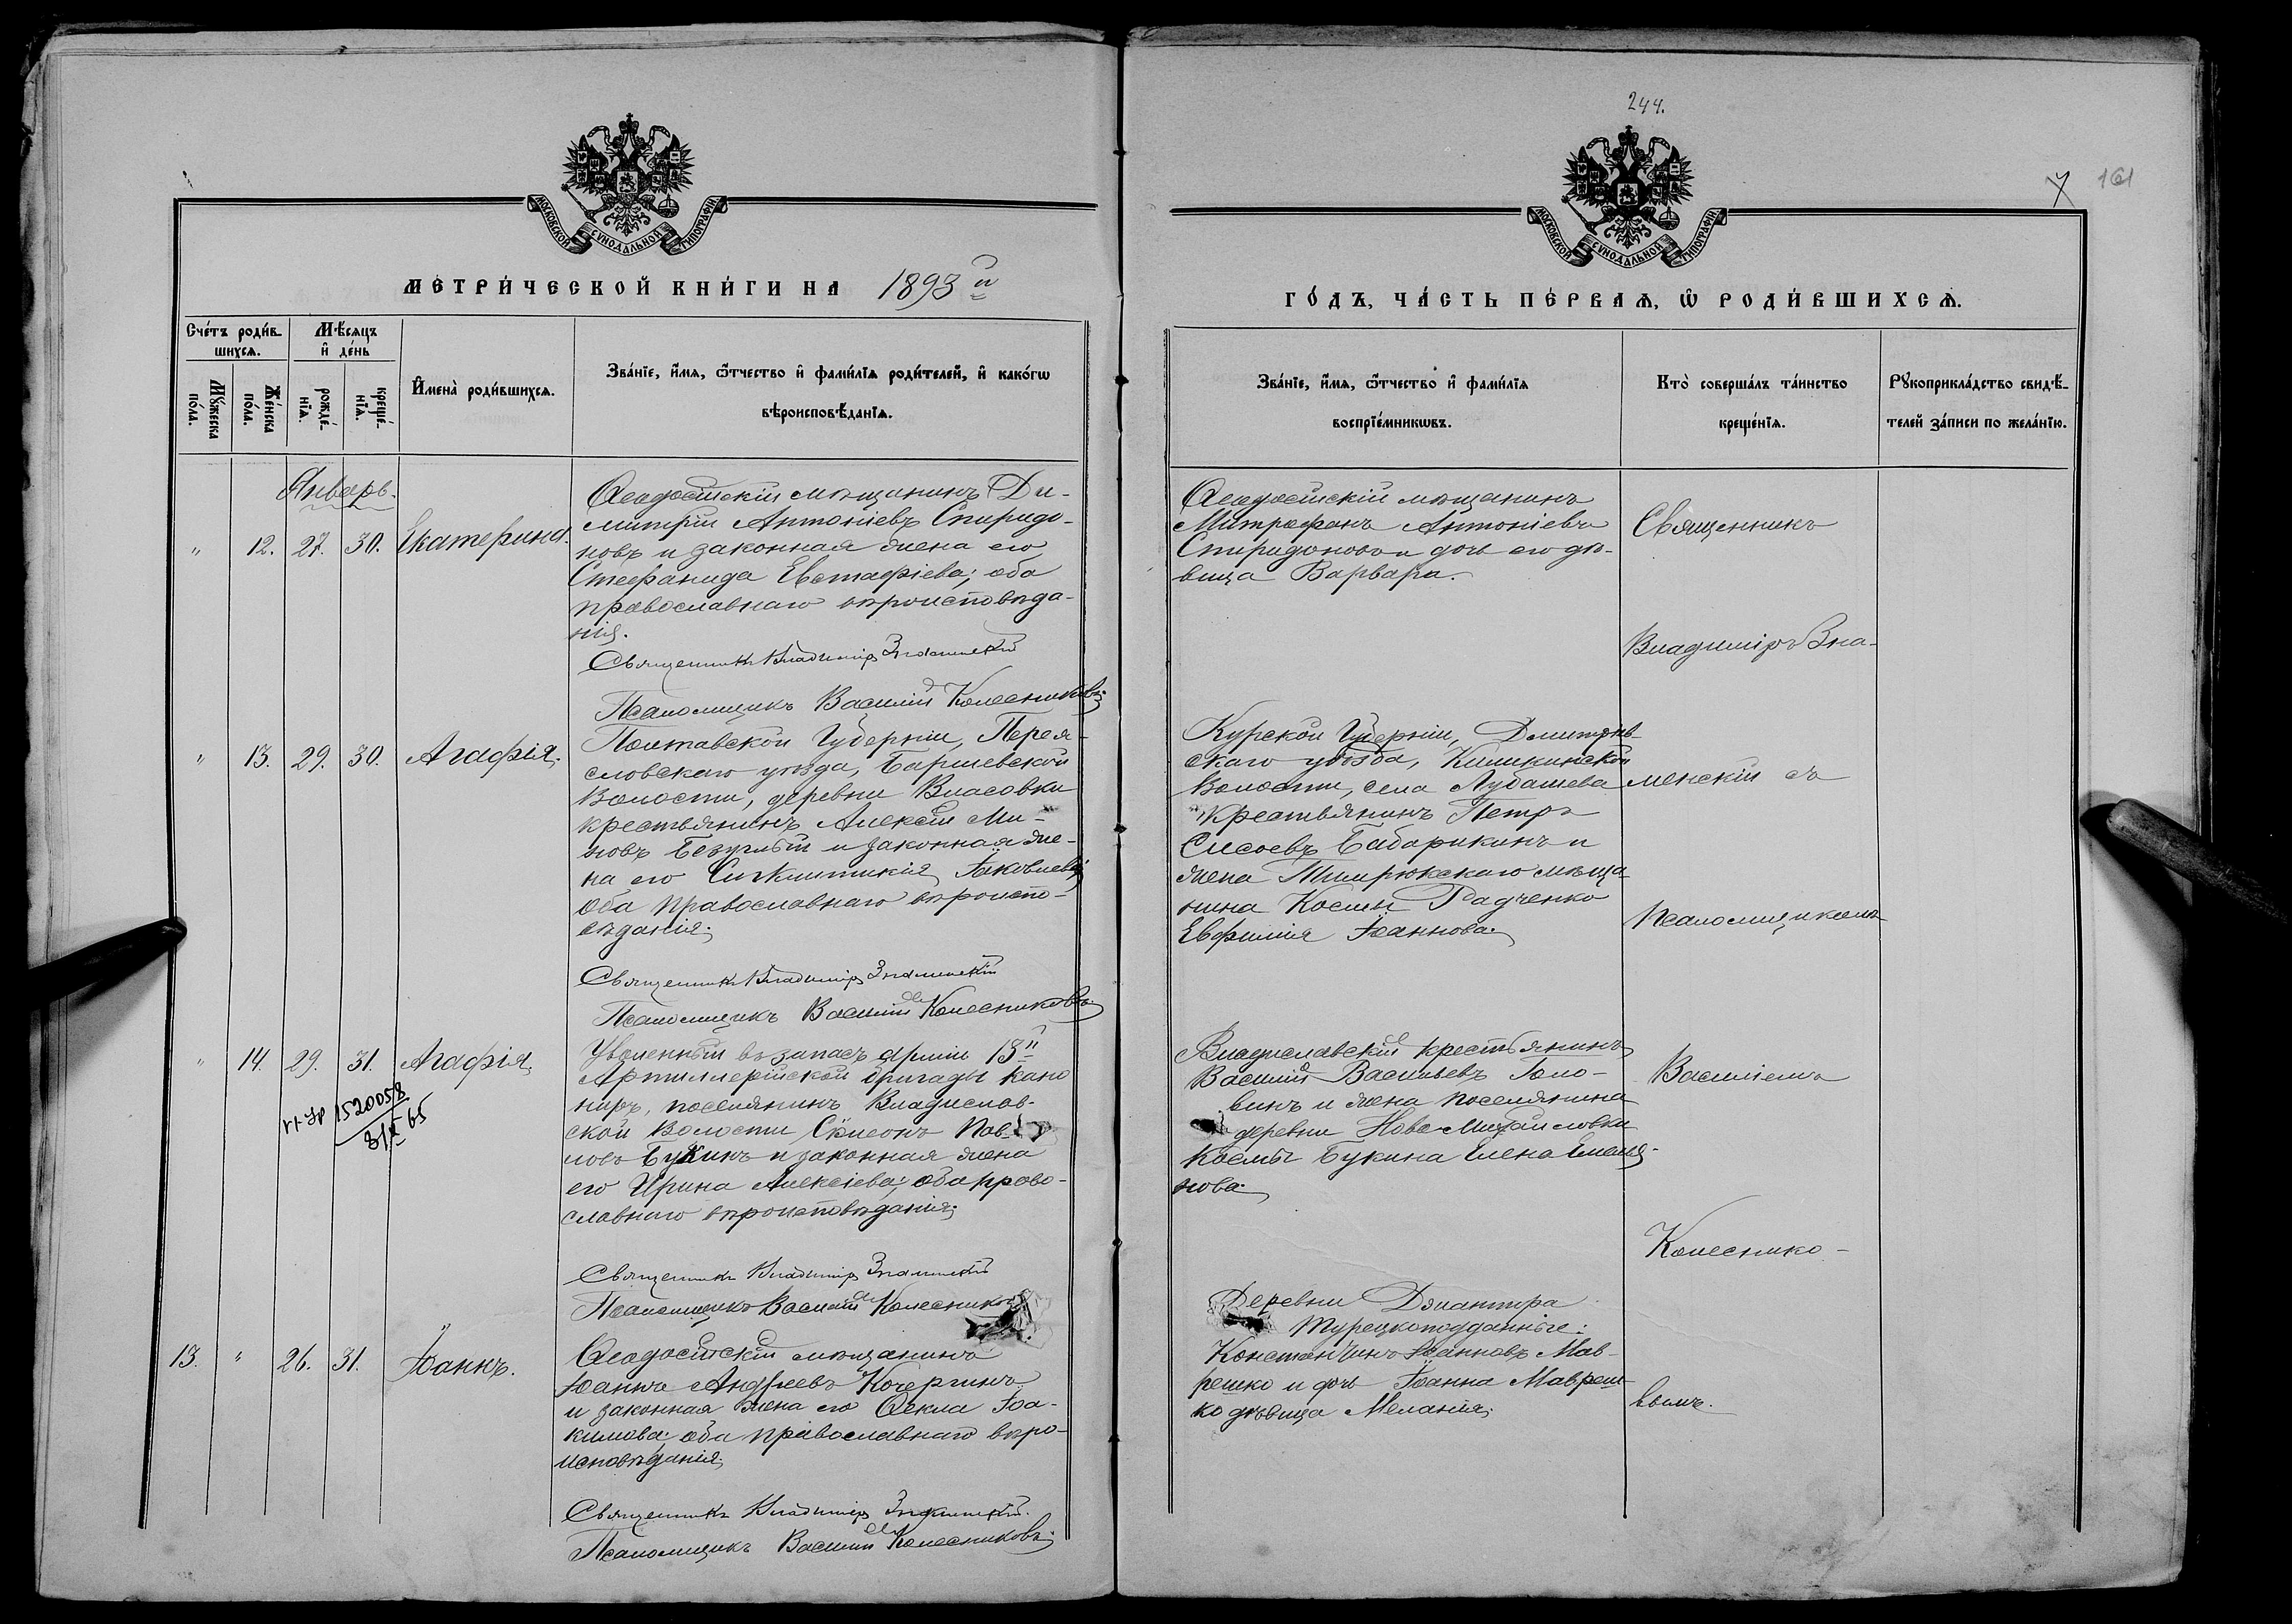 244.
7 161
МОСКОВСКОЙ СѴНОДАЛЬНОЙ ТИПОГРАФІИ
МОСКОВСКОЙ СѴНОДАЛЬНОЙ ТИПОГРАФІИ
МЕТРИ́ЧЕСКОЙ КНИ́ГИ НА 1893й
ГО́ДЪ, ЧА́СТЬ ПЕ́РВАѦ, Ѡ РОДИ́ВШИХСѦ.
Сче́тъ роди́в-
шихсѧ.
Мѣ́сѧцъ
и҆ де́нь
Мꙋ́жеска
по́ла.
Же́нска
по́ла.
рожде́-
нїѧ.
креще́-
нїѧ.
И҆мена̀ роди́вшихсѧ.
Зва́нїе, и҆́мѧ, ѻ҆́тчество и҆ фами́лїѧ роди́телей, и҆ како́гѡ
вѣроисповѣ́данїѧ.
Зва́нїе, и҆́мѧ, ѻ҆́тчество и҆ фами́лїѧ
воспрїе́мникѡвъ.
Кто̀ соверша́лъ та́инство
креще́нїѧ.
Рꙋкоприкла́дство свидѣ́-
телей за́писи по жела́нїю.
Январь.
" 12. 27. 30. Екатерина.
Ѳеодосійскій мѣщанинъ Ди-
митрій Антоніевъ Спиридо-
новъ и законная жена его
Стефанида Евстафіева; оба
православнаго вѣроисповѣда-
нія.
Священникъ Владиміръ Знаменскій
Псаломщикъ Василій Колесниковъ.
Ѳеодосійскій мѣщанинъ
Митрофанъ Антоніевъ
Спиридоновъ и дочь его дѣ-
вица Варвара.
Священникъ
Владиміръ Зна-
" 13. 29. 30. Агафія.
Полтавской Губерніи, Перея-
словскаго уѣзда,
Волости, деревни Власовки
крестьянинъ Алексій Ми-
новъ Безуглый и законная же-
на его Синклитикія Іаковлева
Оба православнаго вѣроиспо-
вѣданія.
Священникъ Владиміръ Знаменскій
Псаломщикъ Василій Колесниковъ.
Курской Губерніи, Дмитрів-
скаго уѣзда,
Волости, села Лубашева
крестьянинъ Петръ
Сисоевъ Бабарикинъ и
жена Темрюкскаго мѣща-
нина Космы Радченко
Евфимія Іоаннова.
менскій съ
псаломщикомъ
" 14. 29. 31. Агафія.
1520058
65
Уволенный въ запасъ арміи 13й
Артиллерійской бригады кано
ниръ, поселянинъ Владислав-
ской Волости Сѵмеонъ Пав-
ловъ Букинъ и законная жена
его Ирина Алексіева; оба право-
славнаго вѣроисповѣданія.
Священникъ Владиміръ Знаменскій
Псаломщикъ Василій Колесниковъ
Владиславскій крестьянинъ
Василій Васильевъ Голо-
винъ и жена поселянина
деревни Ново-Михайловки
Космы Букина Елена Емелья-
нова.
Василіемъ
Колеснико-
13. " 26. 31. Іоаннъ.
Ѳеодосійскій мѣщанинъ
Іоаннъ Андреевъ Кочергинъ
и законная жена его Ѳекла Іоа-
кимова; оба православнаго вѣро-
исповѣданія.
Священникъ Владиміръ Знаменскій.
Псаломщикъ Василій Колесниковъ.
Деревни Джантра
Турецкоподданные:
Константинъ Іоанновъ Мав-
решко и дочь Іоанна Мавреш-
ко дѣвица Меланія.
вымъ.